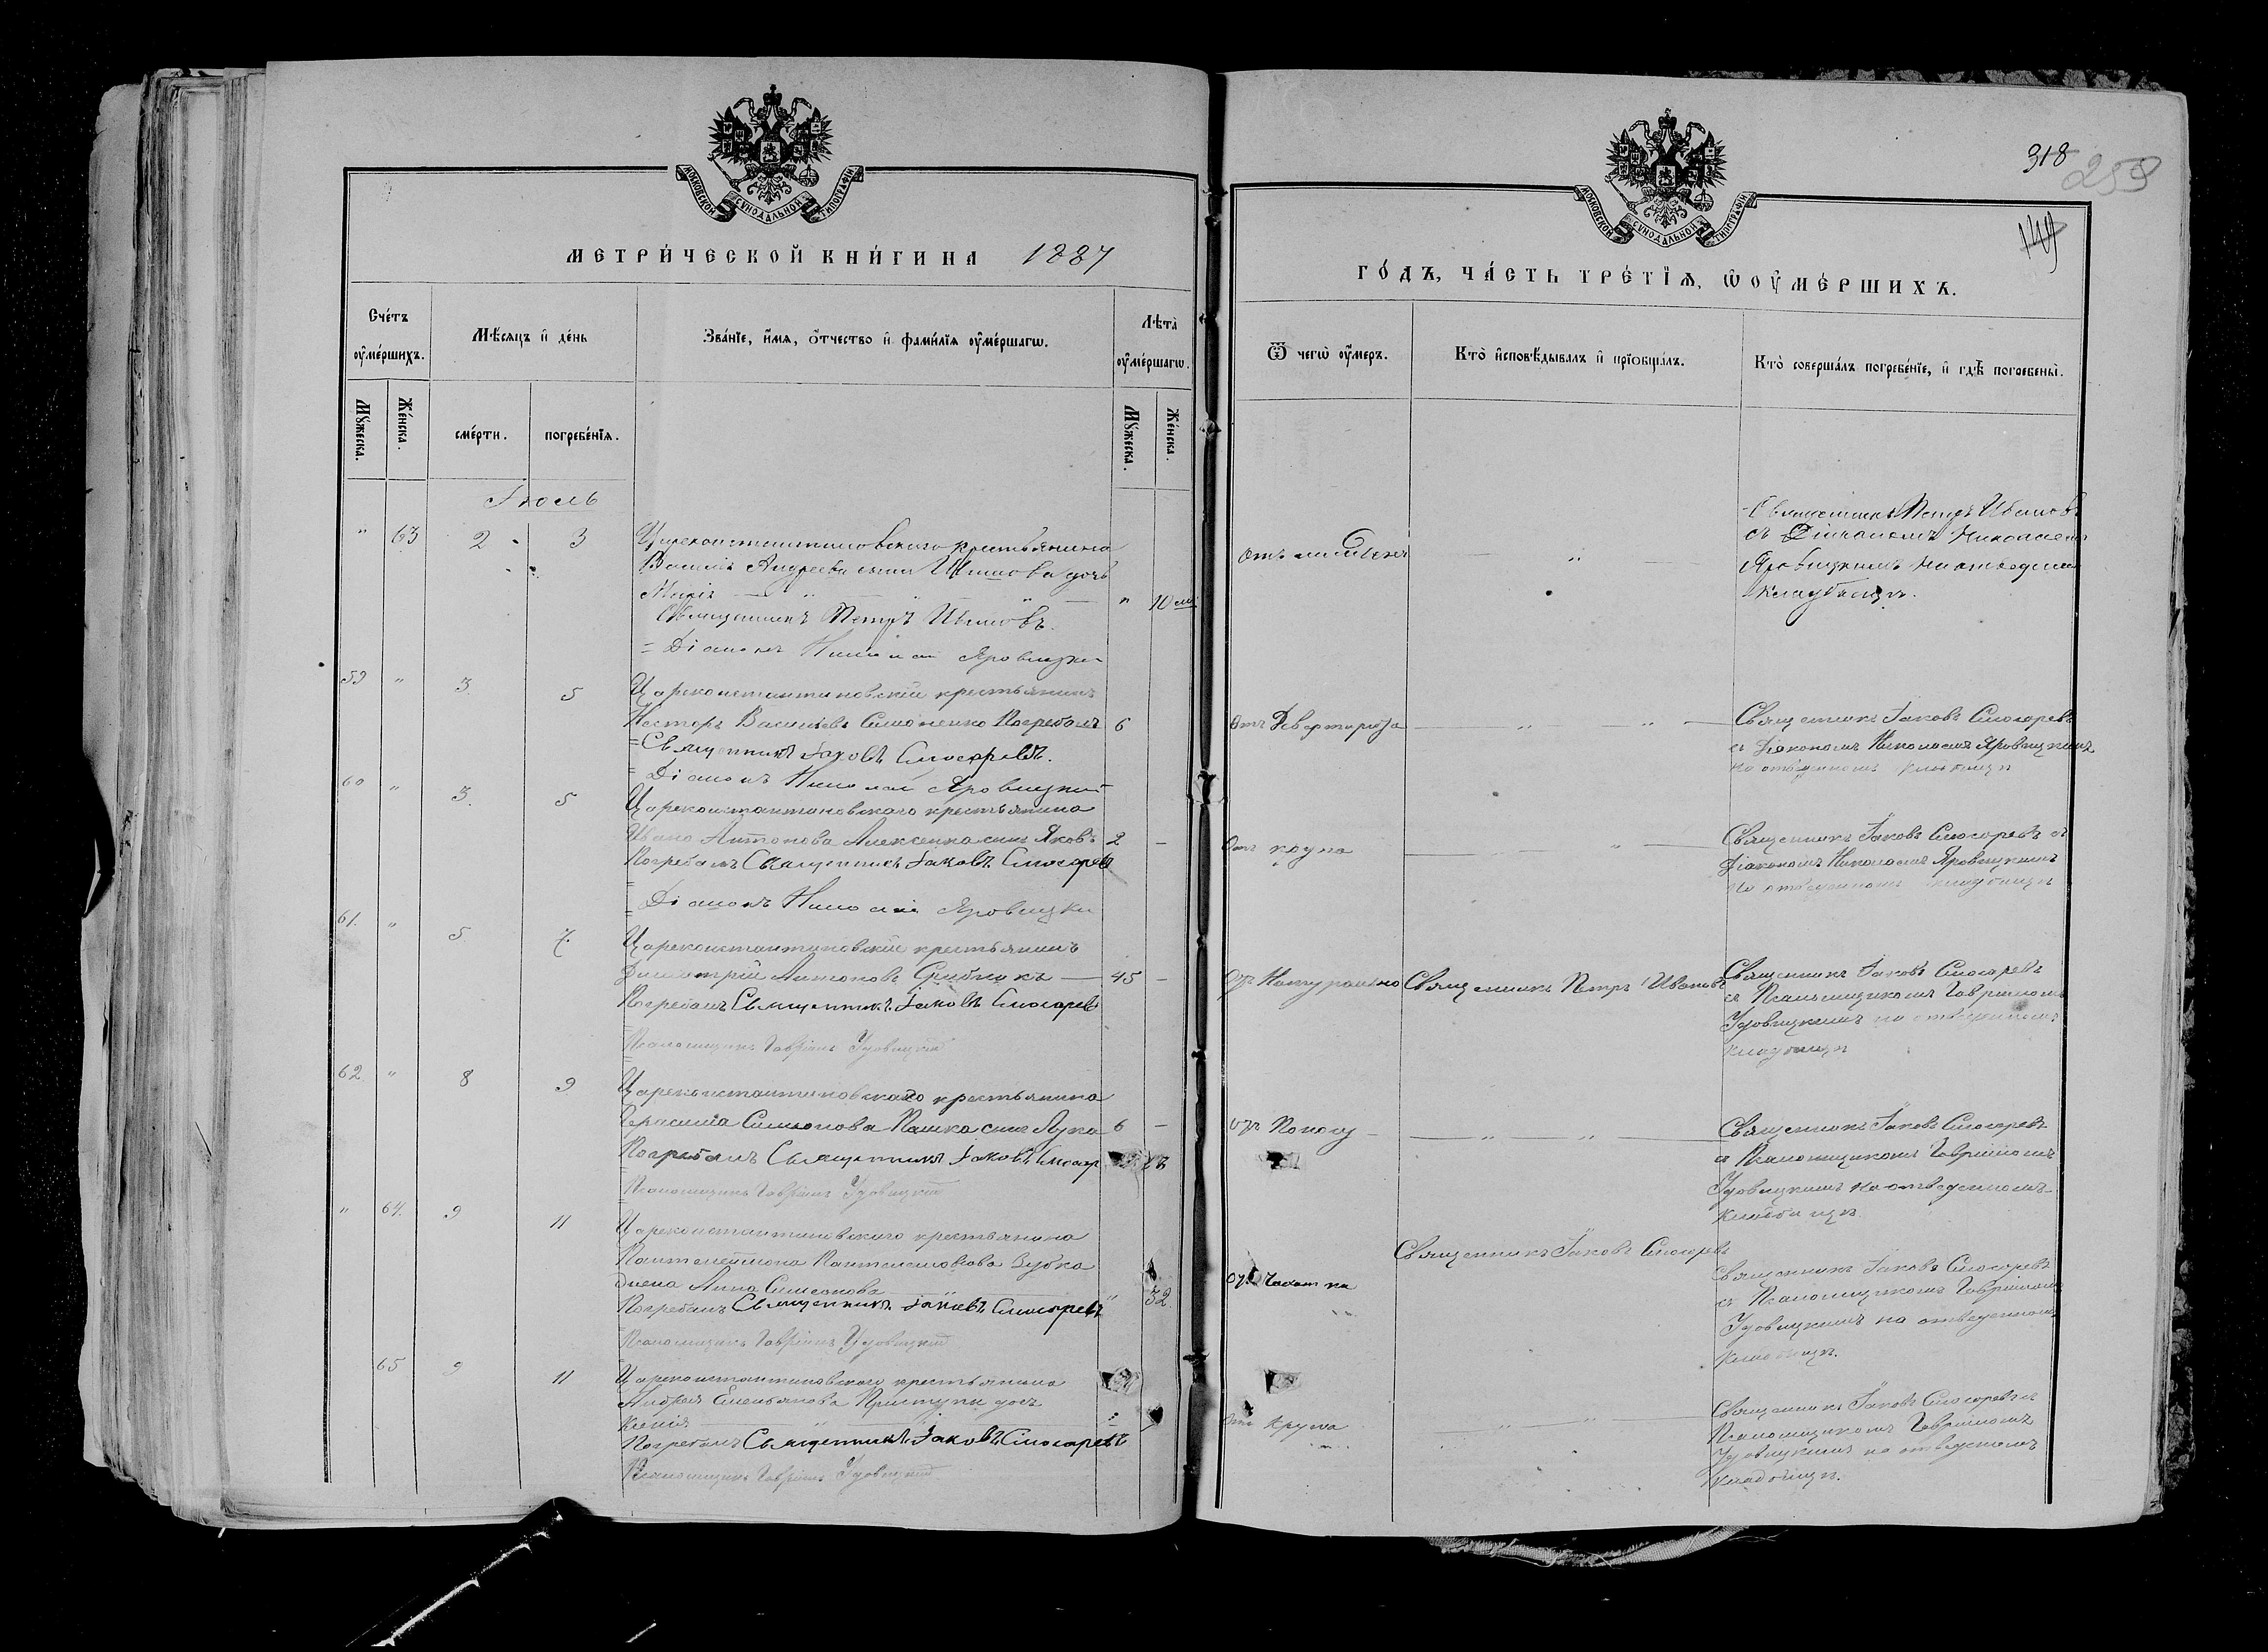 МОСКОВСКОЙ СУНОДАЛЬНОЙ ТИПОГРАФІИ
МЕТРИ́ЧЕСКОЙ КНИ́ГИ НА 1887
Сче́тъ оу҆ме́ршихъ.
Мѣ́сяцъ и҆ де́нь
Зва́нїе, и҆́мя, ѻ҆́тчество и҆ фамѝлїя оу҆ме́ршагѡ.
Лѣ́та оу҆ме́ршагѡ.
Мꙋ́жеска.
Же́нска.
сме́рти.
погребе́нїя.
Мꙋ́жеска.
Же́нска.
Іюль
" 63 2 3 Цареконстантиновскаго крестьянина
Василія Андреева сына дочь
Марія " " " 10 м.
Священникъ Петръ Ивановъ
Діаконъ Николай Яровицкій
59 " 3 5 Цареконстантиновскій крестьянинъ
Несторъ Васильевъ Симоненко Погребалъ 6
Священникъ Іаковъ Слюсаревъ.
Діаконъ Николай Яровицкій
60 " 3. 5 Цареконстантиновскаго крестьянина
Ивана Антонова Алексенка сынъ Яковъ 2 —
Погребалъ Священникъ Іаковъ Слюсаревъ
Діаконъ Николай Яровицкій
61. " 5 7. Цареконстантиновскій крестьянинъ
Димитрій Антоновъ — 45 —
Погребалъ Священникъ Іаковъ Слюсаревъ
Псаломщикъ Гавріилъ Удовицкій
62 " 8 9 Цареконстантиновскаго крестьянина
Герасима Симонова Пашка сынъ Лука 6 —
Погребалъ Священникъ Іаковъ Слюсар
Псаломщикъ Гавріилъ Удовицкій
" 64. 9 11 Цареконстантиновскаго крестьянина
Пантелеймона Пантелеймонова Зубка
жена Анна Симеонова
Погребалъ Священникъ Іаковъ Слюсаревъ " 32
Псаломщикъ Гавріилъ Удовицкій
65 9 11 Цареконстантиновскаго крестьянина
Андрея Емельянова Приступы дочь
Ксенія
Погребалъ Священникъ Іаковъ Слюсаревъ
Псаломщикъ Гавріилъ Удовицкій
318
МОСКОВСКОЙ СУНОДАЛЬНОЙ ТИПОГРАФІИ
ГО́ДЪ, ЧА́СТЬ ТРЕ́ТЇѦ, Ѡ҆ ОУ҆МЕ́РШИХЪ.
Ѿ чегѡ̀ оу҆́меръ.
Кто̀ и҆сповѣ́дывалъ и҆ прїобща́лъ.
Кто̀ соверша́лъ погребе́нїе, и҆ гдѣ̀ погребены̀.
Священникъ Петръ Ивановъ
съ Діакономъ Николаемъ
Яровицкимъ на отведенномъ
кладбищѣ.
Отъ "
Отъ " " Священникъ Іаковъ Слюсаревъ
съ Діакономъ Николаемъ Яровицкимъ
на отведенномъ кладбищѣ
Отъ " Священникъ Іаковъ Слюсаревъ съ
Діакономъ Николаемъ Яровицкимъ
на отведенномъ кладбищѣ
Натурально Священникъ Петръ Ивановъ Священникъ Іаковъ Слюсаревъ
съ Псаломщикомъ Гавріиломъ
Удовицкимъ на отведенномъ
кладбищѣ
Отъ Поносу " " Священникъ Іаковъ Слюсаревъ
съ Псаломщикомъ Гавріиломъ
Удовицкимъ на отведенномъ
кладбищѣ
Отъ Чахотки Священникъ Іаковъ Слюсаревъ Священникъ Іаковъ Слюсаревъ
съ Псаломщикомъ Гавріиломъ
Удовицкимъ на отведенномъ
кладбищѣ.
Отъ Крупа " " Священникъ Іаковъ Слюсаревъ съ
Псаломщикомъ Гавріиломъ
Удовицкимъ на отведенномъ
кладбищѣ.